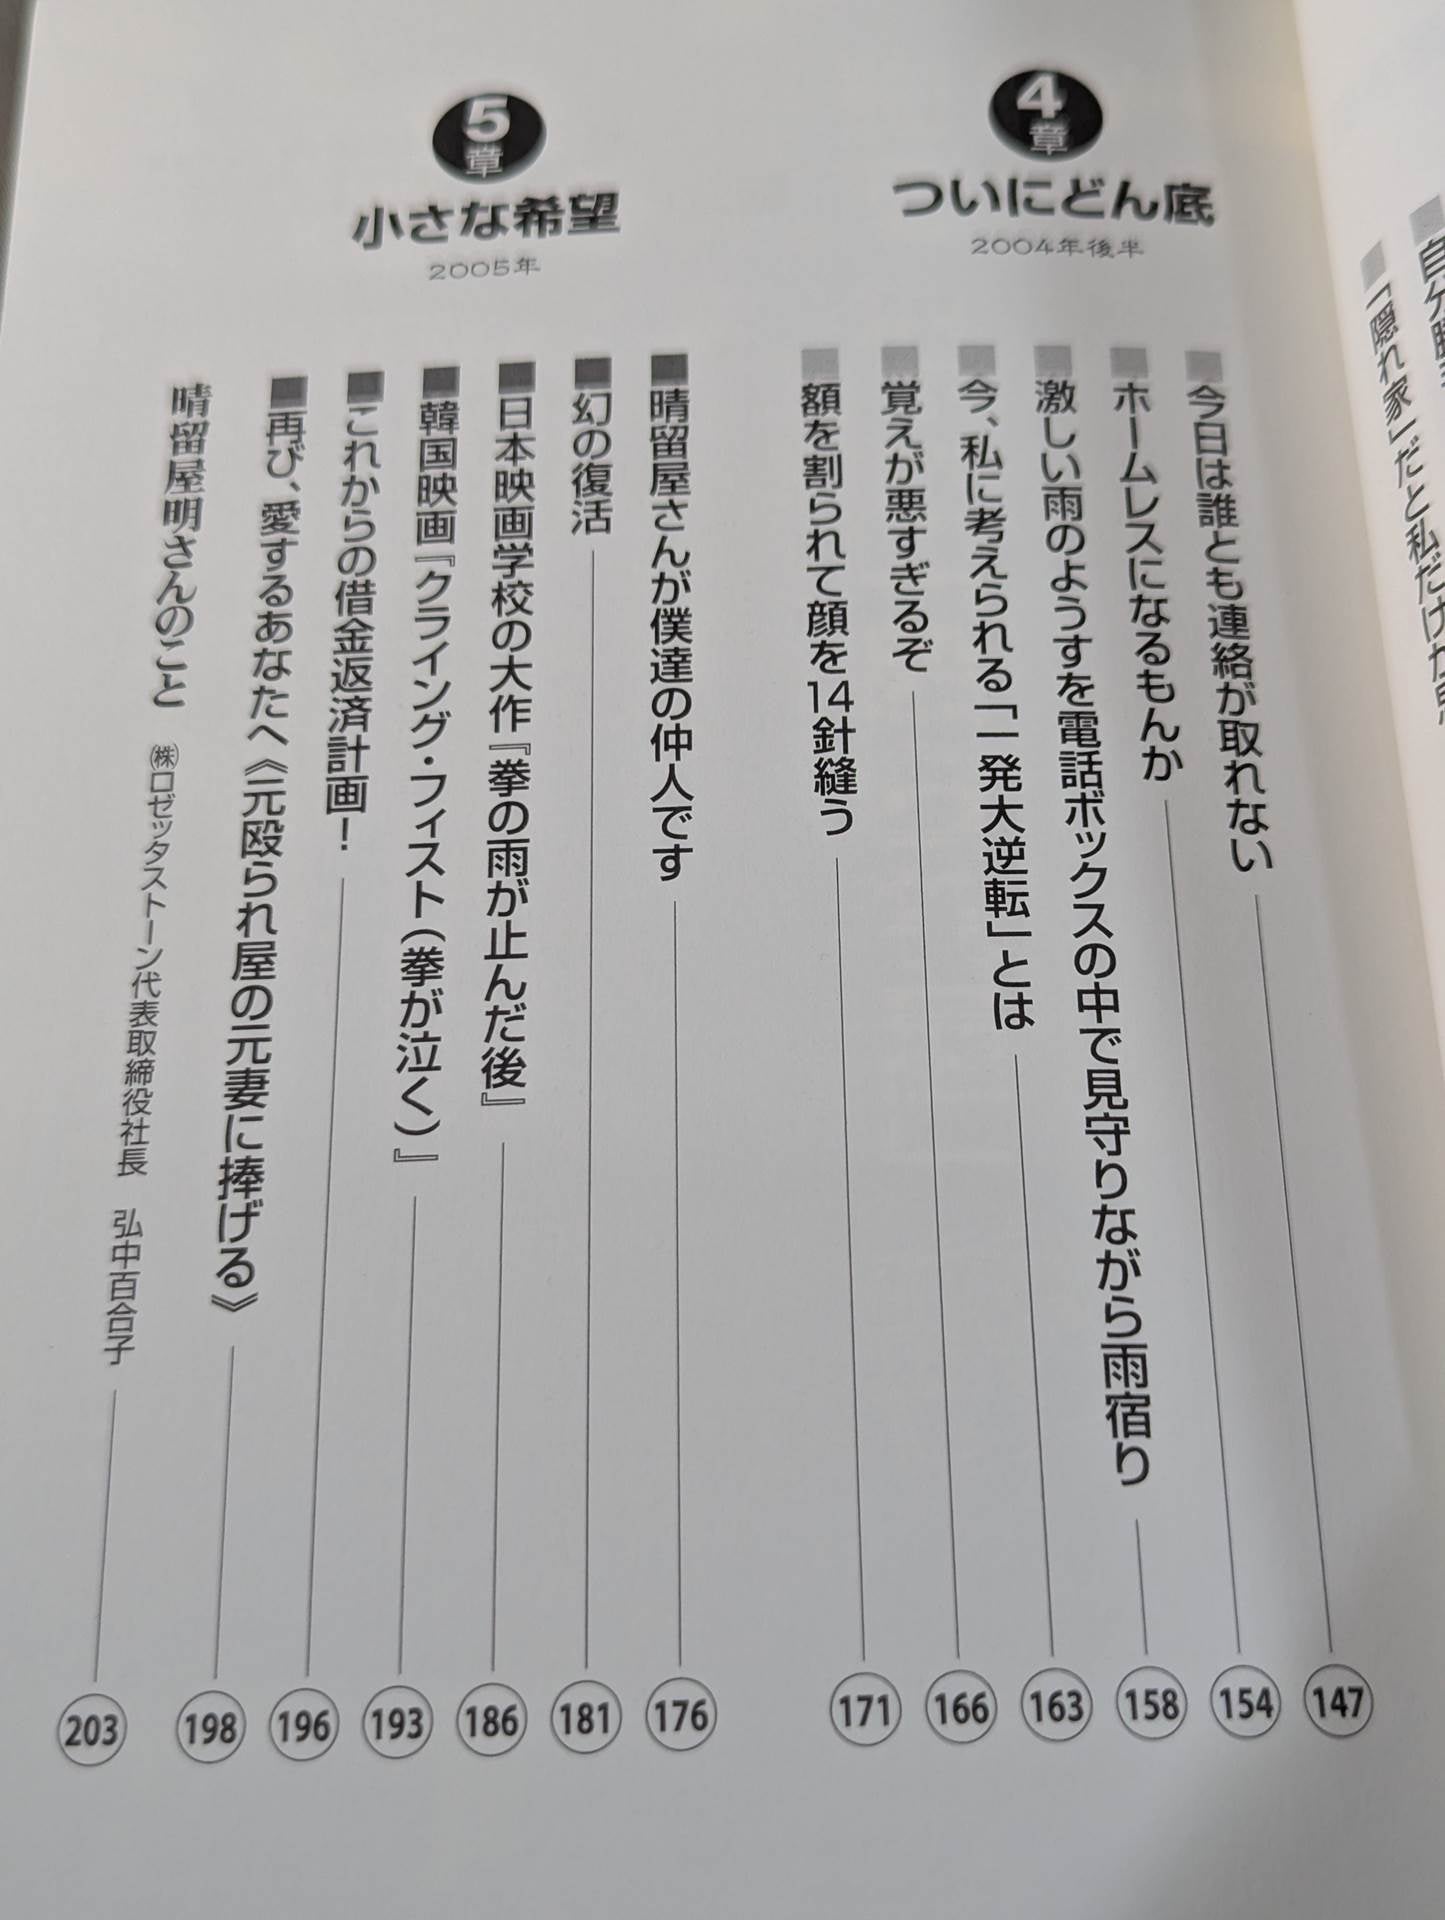 「隠れ家」だと私だけが
4章
ついにどん底
2004年後半
今日は誰とも連絡が取れない 147
ホームレスになるもんか 154
激しい雨のようすを電話ボックスの中で見守りながら雨宿り 158
今、私に考えられる「一発大逆転」とは 163
覚えが悪すぎるぞ 166
額を割られて顔を14針縫う 171
5章
小さな希望
2005年
晴留屋さんが僕達の仲人です 176
幻の復活 181
日本映画学校の大作『拳の雨が止んだ後』 186
韓国映画『クライング・フィスト(拳が泣く)』 193
これからの借金返済計画! 196
再び、愛するあなたへ《元殴られ屋の元妻に捧げる》 198
晴留屋明さんのこと ㈱ロゼッタストーン代表取締役社長 弘中百合子 203